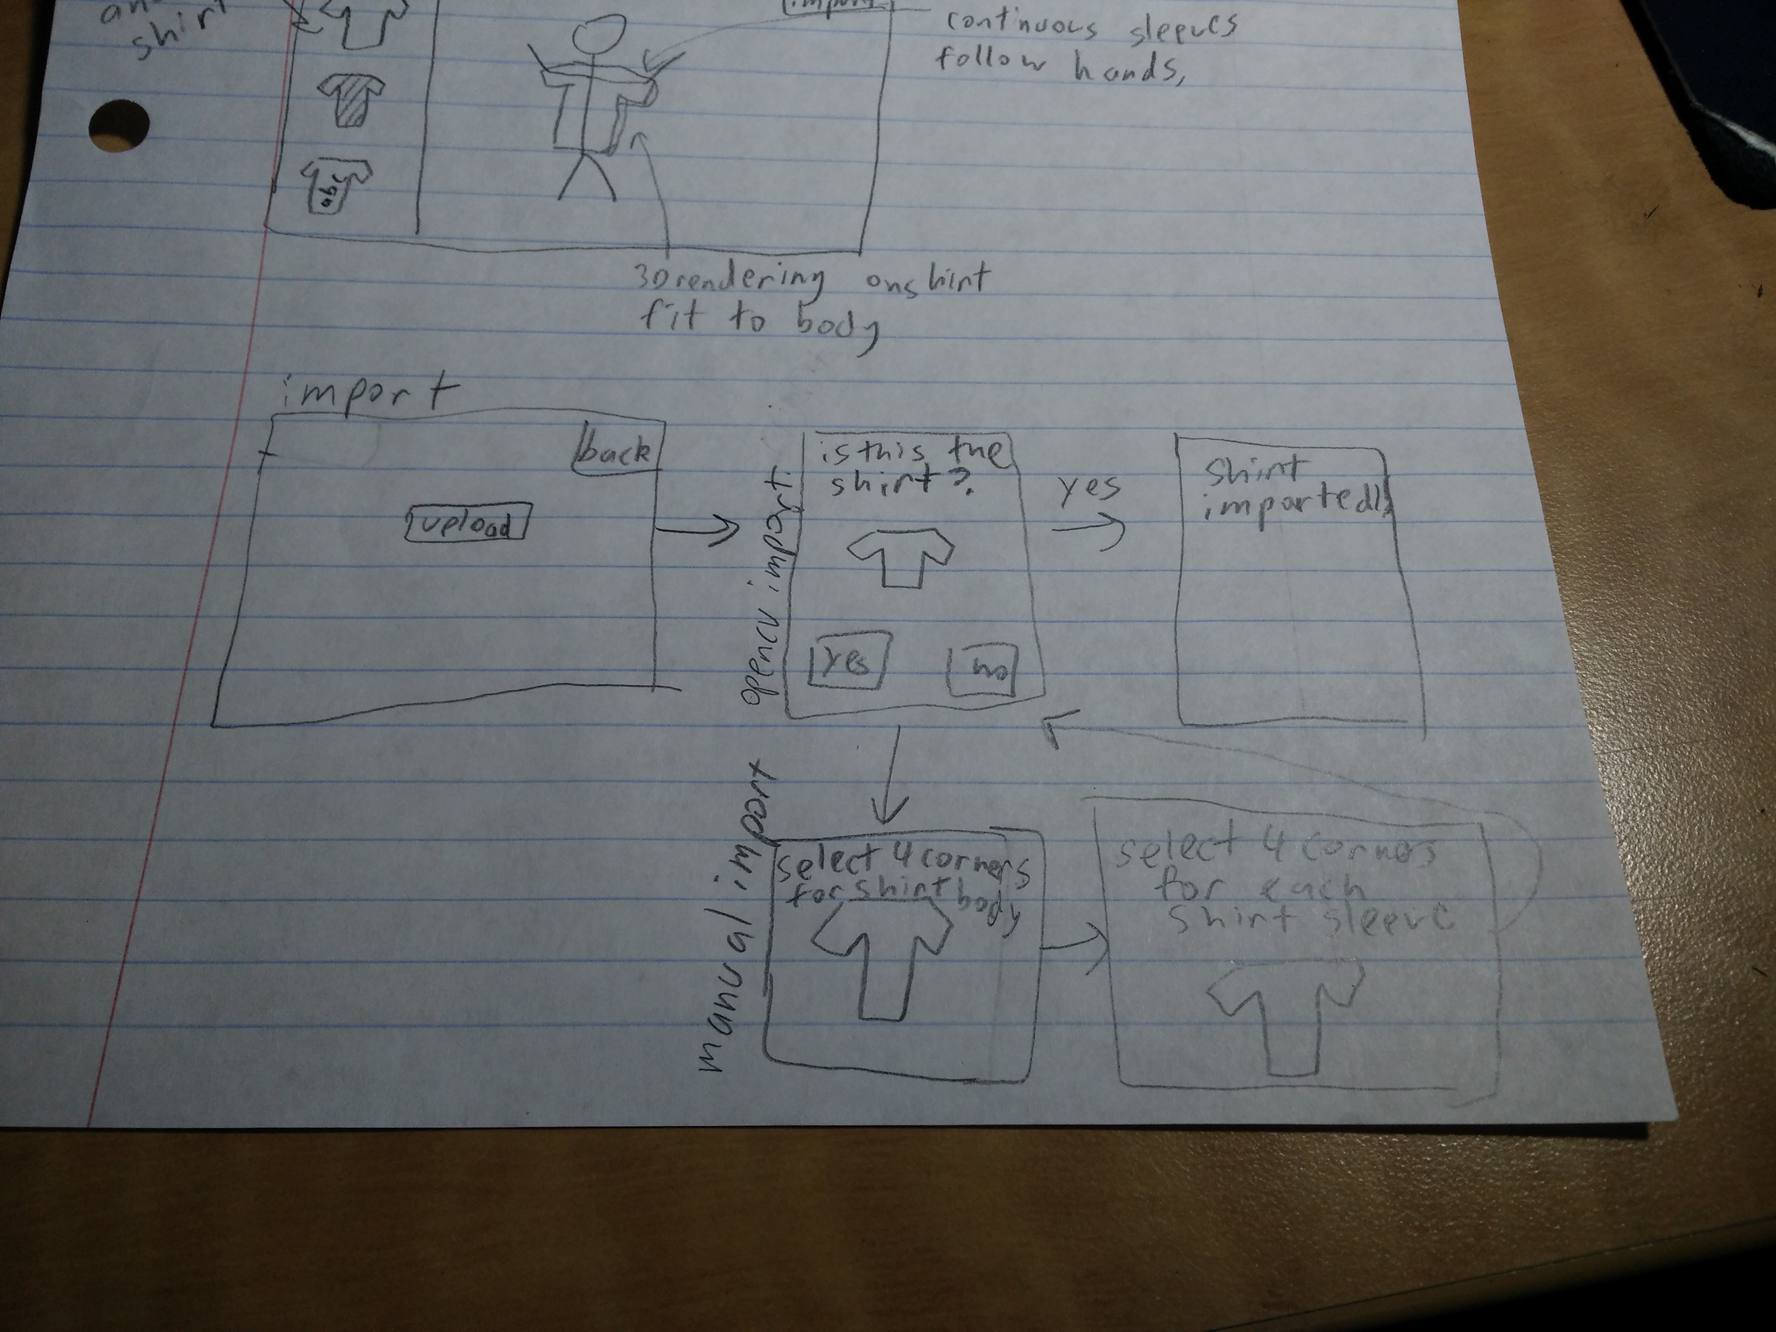 shirt
import
continuous sleeves
follow hands,
logo
3D rendering on shirt
fit to body
import
back
upload
opencv import
is this the
shirt?
yes
no
yes
shirt
imported!
manual import
select 4 corners
for shirt body
select 4 corners
for each
shirt sleeve